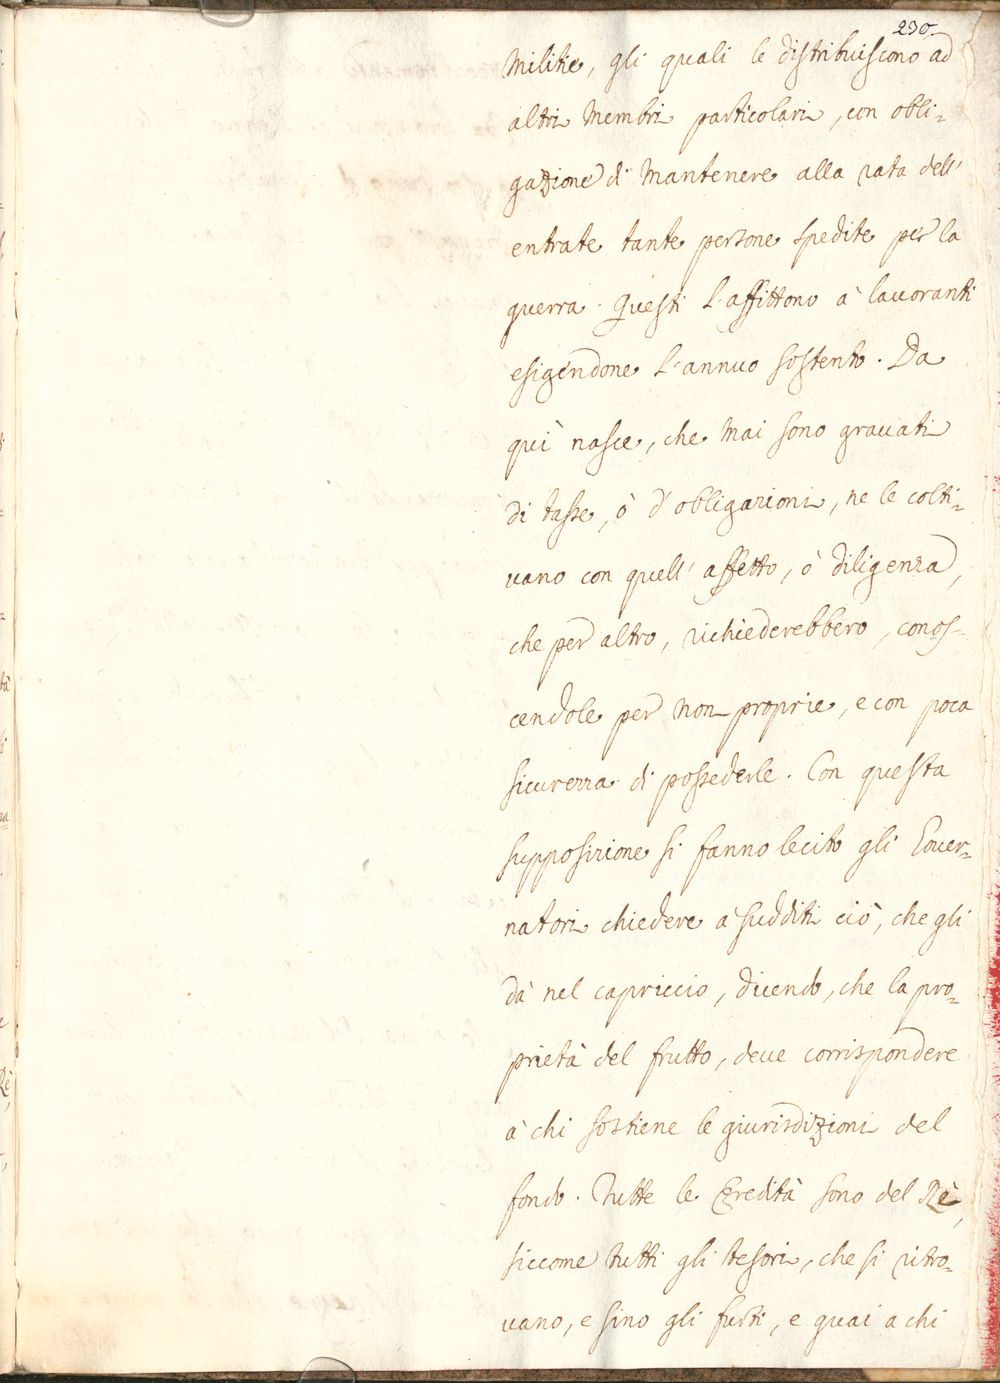 230.
Militie, gli quali le distribuiscono ad
altri Membri particolari, con obli=
gazione di Mantenere alla rata dell'
entrate tante persone spedite per la
guerra. Questi l'affittono à lavoranti
esigendone l'annuo sostento. Da
quì nasce, che mai sono gravati
di tasse, ò d'obligazioni, ne le colti=
vano con quell'affetto, ò diligenza,
che per altro, richiederebbero, conos=
cendole per non proprie, e con poca
sicurezza di possederle. Con questa
supposizione si fanno lecito gli Gover=
natori chiedere à sudditi ciò, che gli
dà nel capriccio, dicendo, che la pro=
prietà del frutto, deve corrispondere
à chi sostiene le giurisdizioni del
fondo. Tutte le Eredità sono del Rè,
siccome tutti gli tesori, che si ritro=
vano, e sino gli furti, e guai a chi